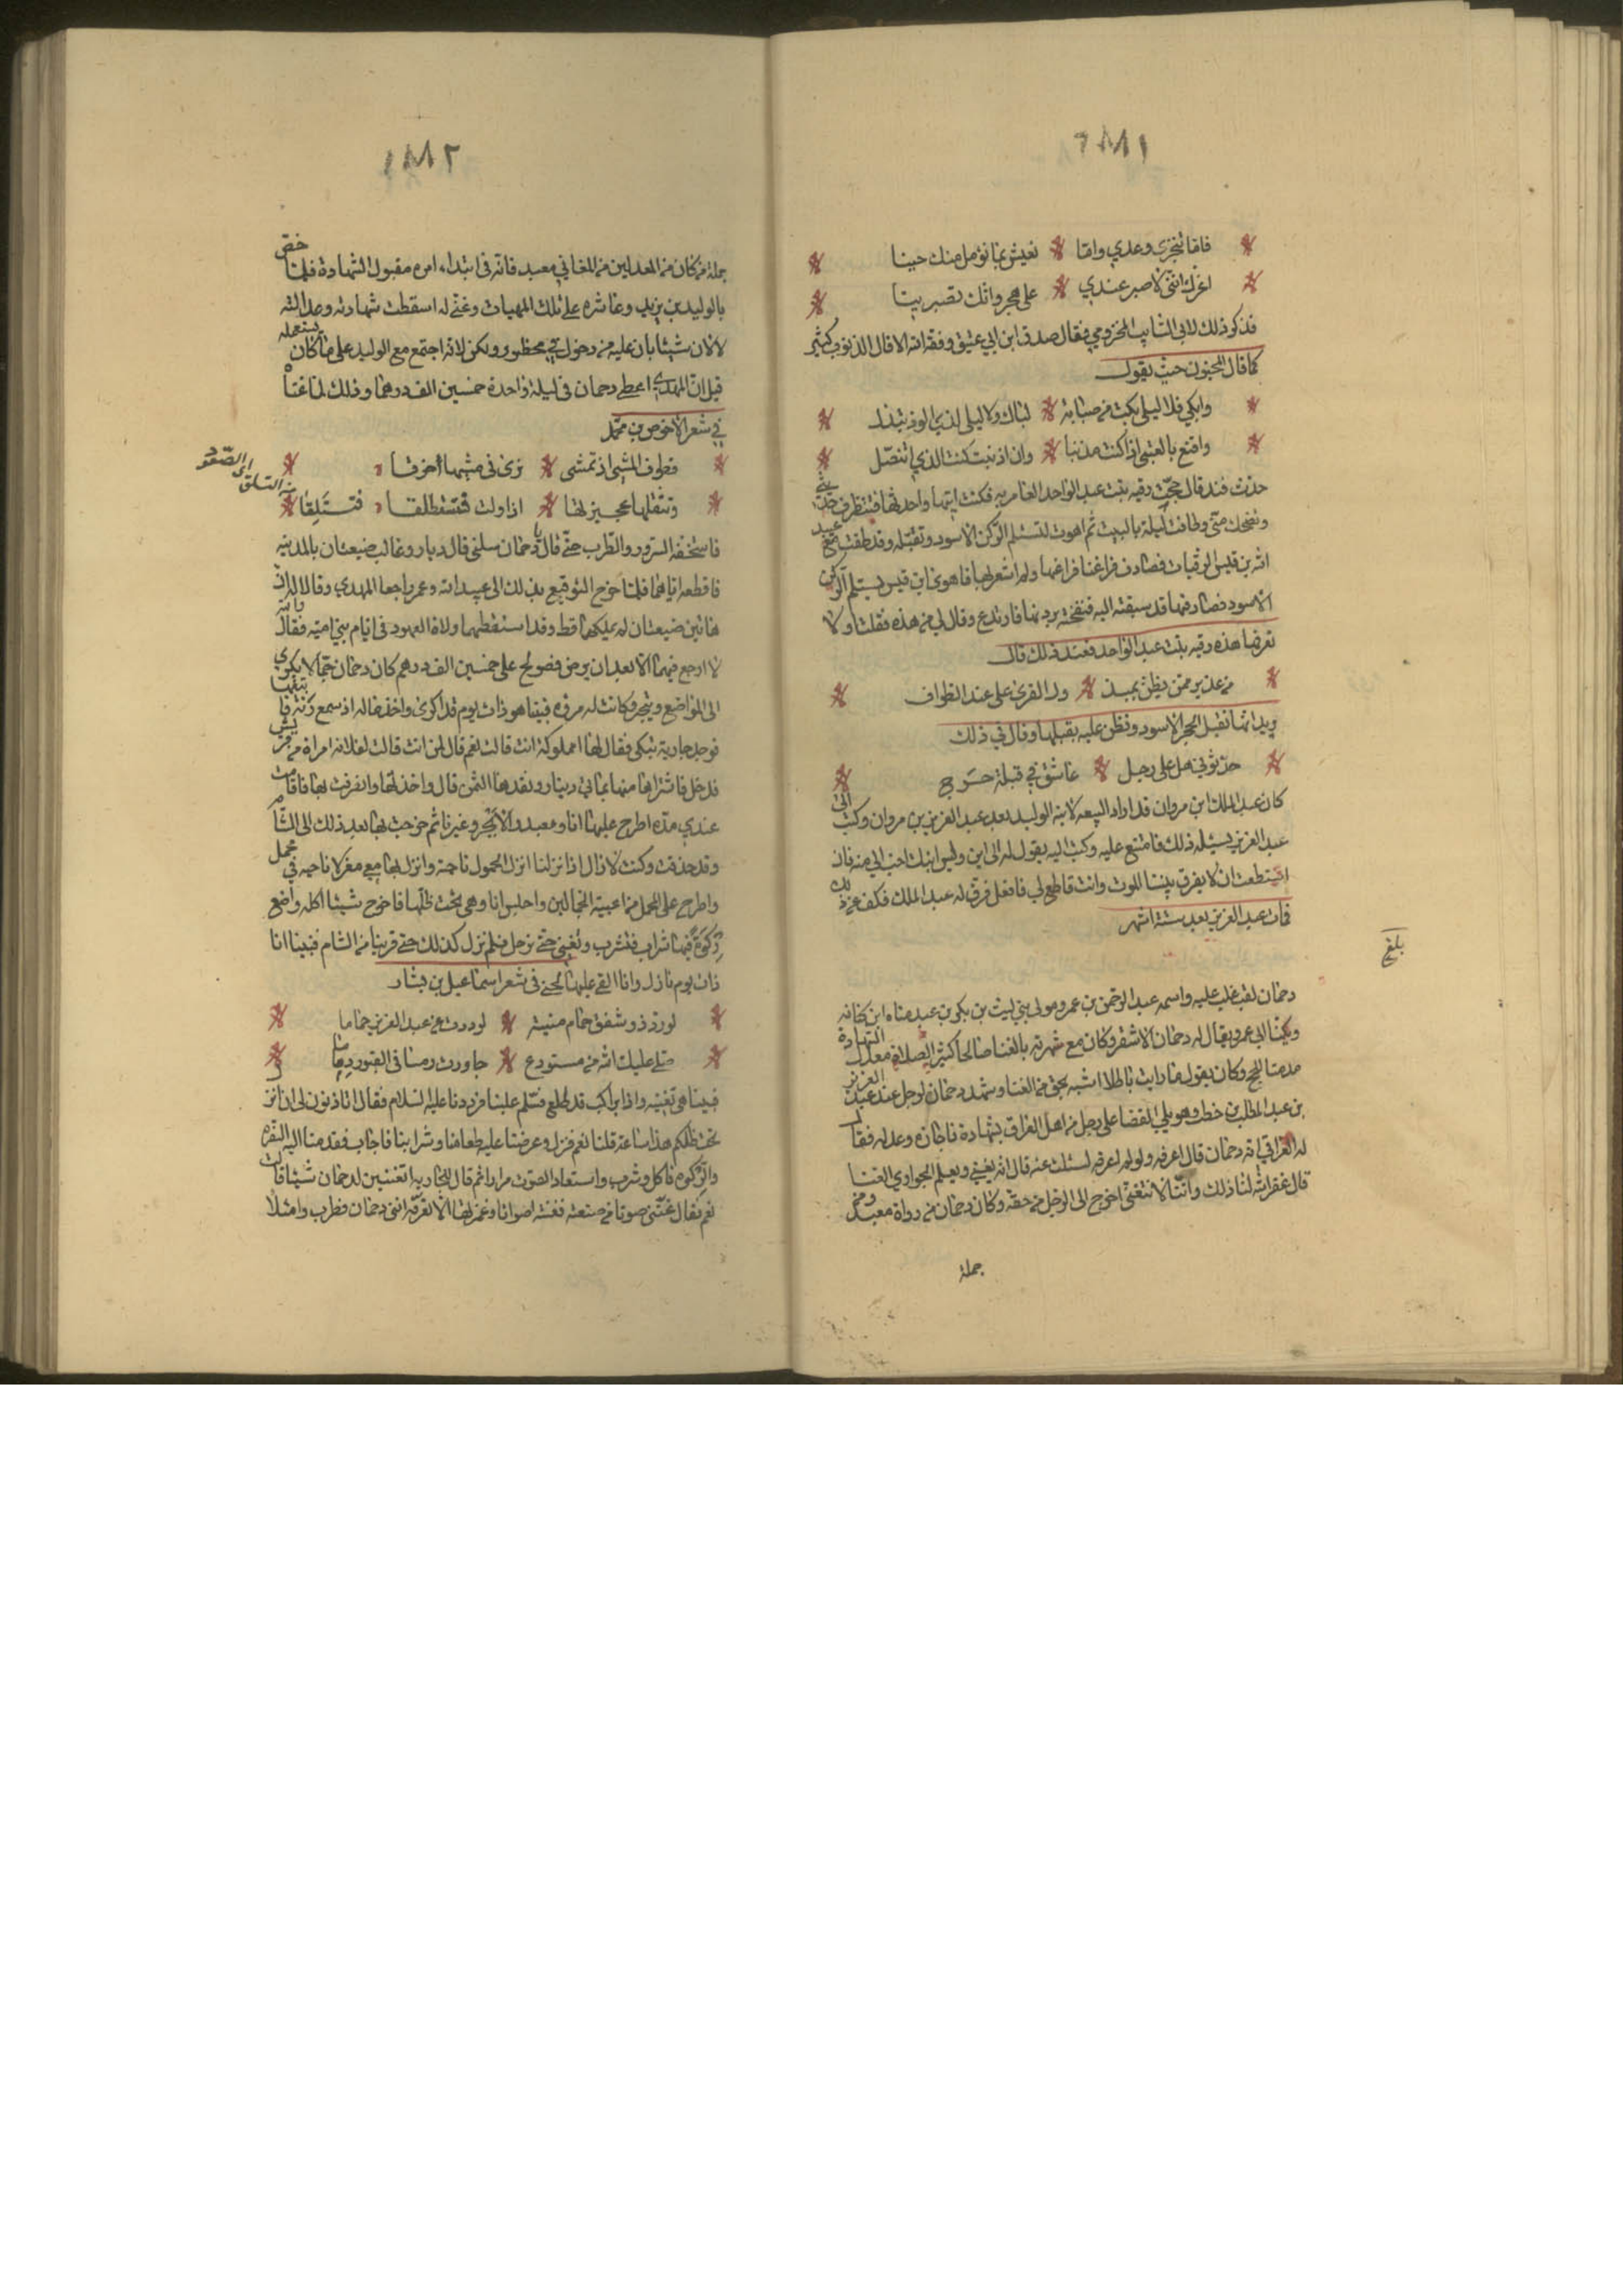 ١٨٨١
فاما تنجزي وعدي واما * نعيش بما نؤمل منك حينا
اغرك انني لا صبر عندي * على هجر وانك تصبرينا
فذكر ذلك لابي السايب المخزومي فقال صدق ابن ابي عتيق وفقه الله الا قال الذنوب كثير
كما قال المجنون حيث يقول
وابكي فلا ليلى بكت من صبابة * لباك ولا ليلى لذي الود تبذل
واقنع بالعتبى اذا كنت مذنبا * وان اذنبت كنت الذي اتنصل
حدث فند قال حجت رقيه بنت عبد الواحد العامريه فكنت اتيها واحدثها فتنظرف حديثي
وتضحك مني وطافت ليلة بالبيت ثم اهوت لتستلم الركن الاسود وتقبله وقد طفت مع عبيد
الله بن قيس الرقيات فصادف فراغنا فراغها ولم اشعر بها فاهوى ابن قيس يستلم الركن
الاسود فصادفها قد سبقته اليه فنفخته بردنها فارتدع وقال لي من هذه فقلت اولا
تعرفها هذه رقيه بنت عبد الواحد فعند ذلك قال
من عذيري ممن يظن بمبذ * ول القرى علي عند الطواف
يريد انما تقبل الحجر الاسود وتظن عليه بقبلها وقال في ذلك
حدثوني هل على رجل * عاشق في قبلة حرج
كان عبد الملك ابن مروان قد اراد البيعه لابنه الوليد بعد عبد العزيز بن مروان وكتب الى
عبد العزيز يسئله ذلك فامتنع عليه وكتب اليه يقول له الى ابن وليس ابنك احب الي منه فان
استطعت ان لا يفرق بيننا الموت وانت قاطع لي فافعل فرق له عبد الملك فكف عن ذلك
فمات عبد العزيز بعد ستة اشهر
بلغ
دحمان لقب غلب عليه واسمه عبد الرحمن بن عمرو مولى بني ليث بن بكر بن عبد مناه ابن كنانه
ويكنا ابي عمرو يقال له دحمان الاشقر وكان مع شهرته بالغنا صالحا كثير الصلاة معدل الشهادة
مدمنا للحج وكان يقول ما رايت باطلا اشبه بحق من الغنا وشهد دحمان لرجل عند عبد العزيز
بن عبد المطلب بن حطب وهو يلي القضا على رجل من اهل العراق بشهادة فاجازه وعدله فقال
له العراقي انه دحمان قال اعرفه ولو لم اعرفه لسئلت عنه قال انه يغني ويعلم الجواري الغنا
قال غفر الله لنا ذلك واينا لا يتغنى اخرج الى الرجل من حقه وكان دحمان من رواة معبد ومن
جملة
١٨٨٢
جملة من كان من المعدلين من المغاني معبد فانه في ابتداء امره مقبول الشهادة فلما خص
بالوليد بن يزيد وعاشره على تلك الهيات وغنى له اسقطت شهادته وعدالته
لا لان شيئا بان عليه من دخول في محظور ولكن لانه اجتمع مع الوليد على ما كان يستعمله
قيل ان المهدي اعطى دحمان في ليلة واحدة خمسين الف درهما وذلك لما غناه
في شعر الاخوص بن محمد
قطوف المشي اذ تمشي * ترى في مشيها خرقا
وتثقلها عجيزتها * اذا ولت لتنطلقا فتستلقا
فاستخفه السرور والطرب حتى قال يا دحمان سلني قال ديار وغالب ضيعتان بالمدينه
فاقطعه اياهما فلما خرج التوقيع بذلك الى عبيد الله وعمر راجعا المهدي وقالا له ان
هاتين ضيعتان لم يملكها قط وقد استقطهما ولاة العهود في ايام بني اميه فقال والله
لا ارجع فيهما الا بعد ان يرضى فصولح على خمسين الف درهم كان دحمان جمالا يكري
الى المواضع ويتجر وكانت له مروه فبينا هو ذات يوم قد اكرى واخذ ماله اذ سمع رنة فا
فوجد جارية تبكي فقال لها امملوكة انت قالت نعم قال لمن انت قالت لفلانه امراة من قريش
فدخل فاشتراها منها بماتي دينار ونقدها الثمن قال واخذتها وانفرت بها فاقامت
عندي مده اطرح عليها انا ومعبد والابجر وغيرنا ثم خرجت بها بعد ذلك الى الشام
وقد حذقت وكنت لا زال اذا نزلنا انزل الحمول ناحية وانزل بها معي معزلا ناحيه في محمل
واطرح على المحمل من اعبية الجمالين واجلس انا وهي تحت ظلها فاخرج شيئا اكله واضع
ركوة فيها شراب فنشرب ونغني حتى نرحل فلم نزل كذلك حتى قربنا من الشام فبينا انا
ذات يوم نازل وانا القي عليها لحني في شعر اسماعيل بن بشار
لو رد ذو شفق حمام منية * لوددت عن عبد العزيز حماما
صلى عليك الله من مستودع * جاورت رمسا في القبور وهاما
فبينا هي تغنيه واذا براكب قد طلع فسلم علينا فرددنا عليه السلام فقال اتاذنون لي ان انزل
تحت ظلكم هذا ساعة قلنا نعم فنزل وعرضنا عليه طعامنا وشرابنا فاجاب فقدمنا اليه السفره
والركوه فاكل وشرب واستعاد الصوت مرارا ثم قال للجاريه اتغنين لدحمان شيئا قالت
نعم فقال غنني صوتا من صنعته فغنته اصواتا وغمزتها الا تعرفه انني دحمان فطرب وامتلا